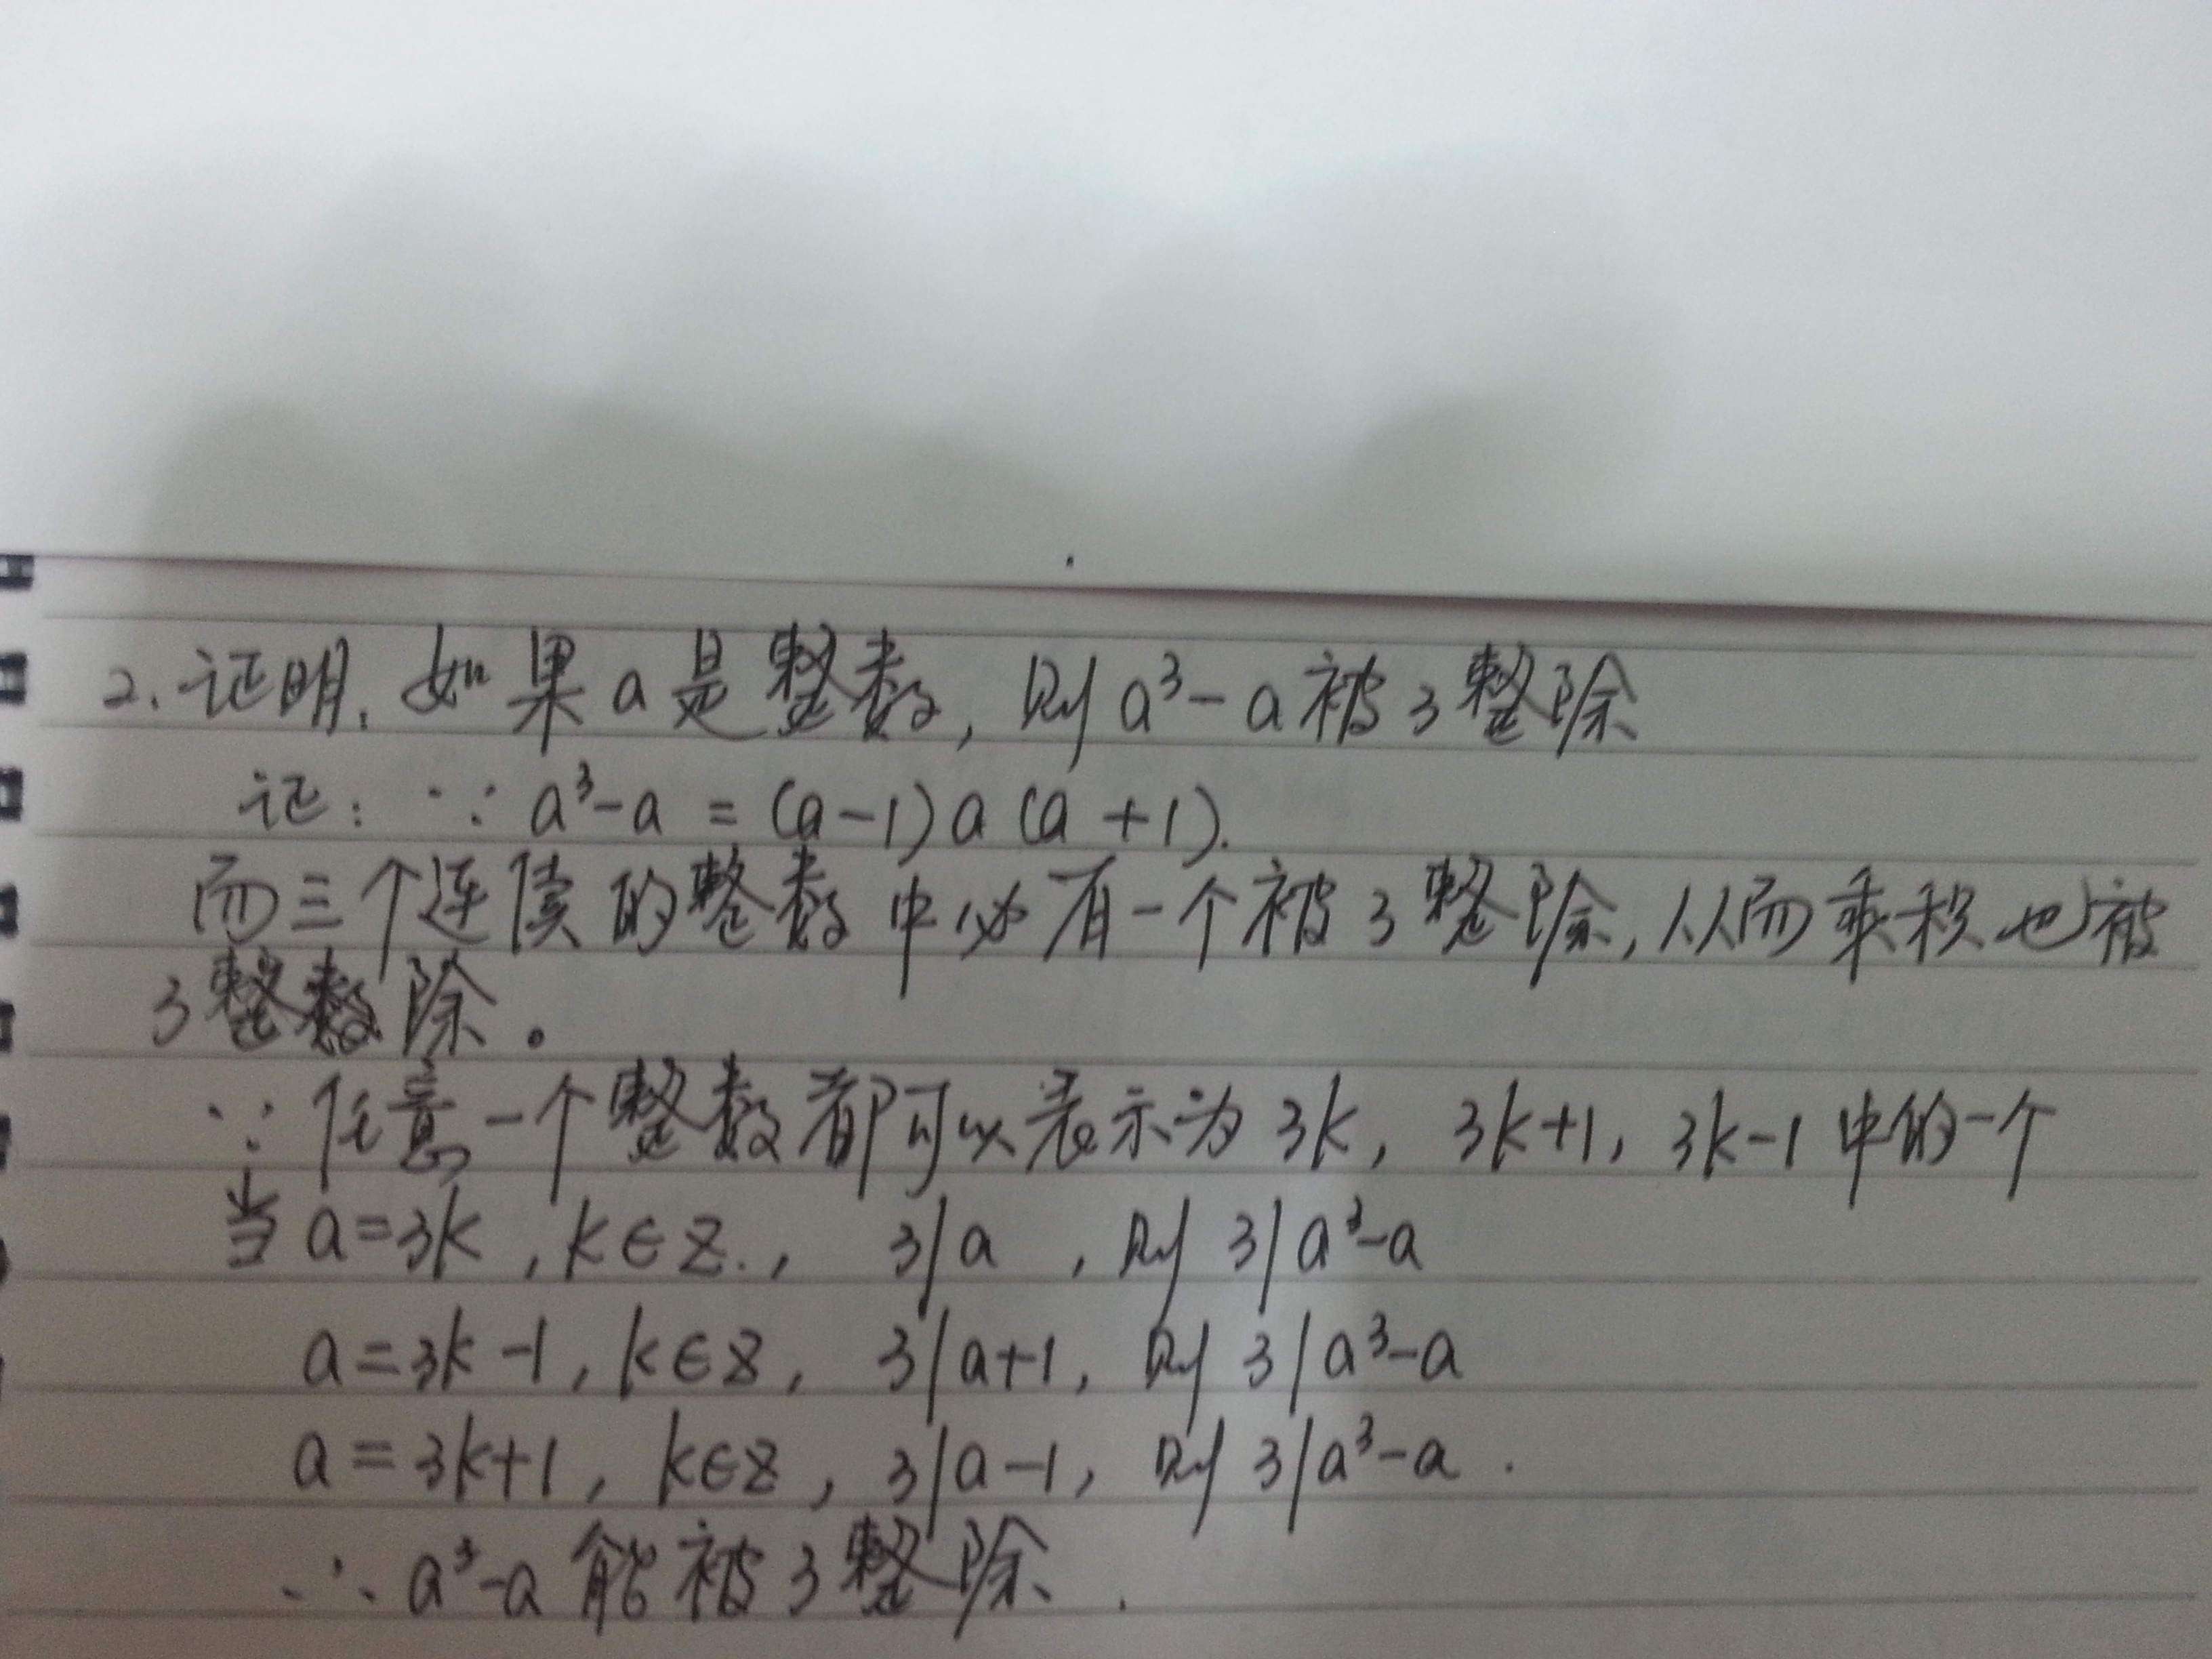 2. 证明: 如果a是整数, 则 a³-a 被3整除
证: ∵ a³-a = (a-1)a(a+1).
而三个连续的整数中必有一个被3整除, 从而乘积也被
3整除。
∵ 任意一个整数都可以表示为 3k, 3k+1, 3k-1 中的一个
当 a=3k, k∈Z., 3|a, 则 3|a³-a
a=3k-1, k∈Z, 3|a+1, 则 3|a³-a
a=3k+1, k∈Z, 3|a-1, 则 3|a³-a.
∴ a³-a 能被3整除.